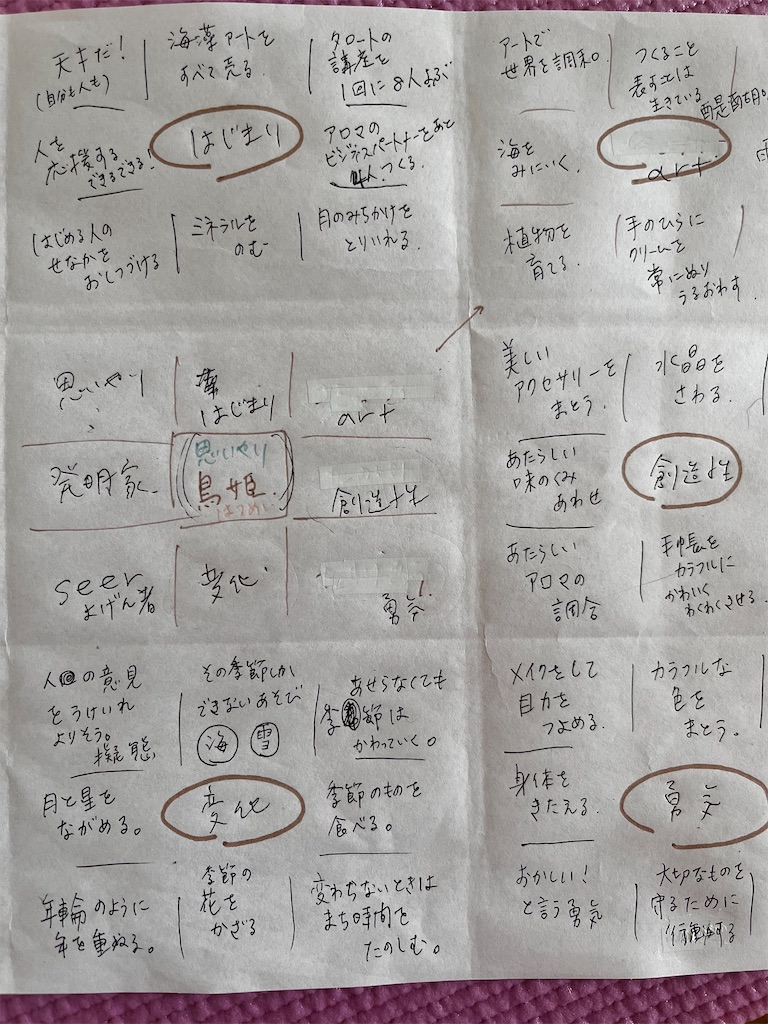 天才だ！
(自分も人も)
海藻アートを
すべて売る
タロートの
講座を
1回に8人よぶ
人を
応援する
できるできる！
はじまり
アロマの
ビジネスパートナーをあと
4人つくる
はじめる人の
せなかを
おしつづける
ミネラルを
のむ
月のみちかけを
とりいれる。
アートで
世界を調和。
つくること
表すことは
生きている
醍醐
海を
みにいく。
art
植物を
育てる。
手のひらに
クリームを
常にぬり
うるおわす
思いやり
はじまり
art
発明家
思いやり
鳥姫
はつめい
創造性
seer
よげん者
変化
勇気
美しい
アクセサリーを
まとう。
水晶を
さわる。
あたらしい
味のくみ
あわせ
創造性
あたらしい
アロマの
調合
手帳を
カラフルに
かわいく
わくわくさせる
人の意見
をうけいれ
よりそう。
擬態
その季節しか
できないあそび
海 雪
あせらなくても
季節は
かわっていく。
月と星を
ながめる。
変化
季節のものを
食べる。
年輪のように
年を重ねる。
季節の
花を
かざる
変わらないときは
まち時間を
たのしむ。
メイクをして
目力を
つよめる。
カラフルな
色を
まとう。
身体を
きたえる
勇気
おかしい！
と言う勇気
大切なものを
守るために